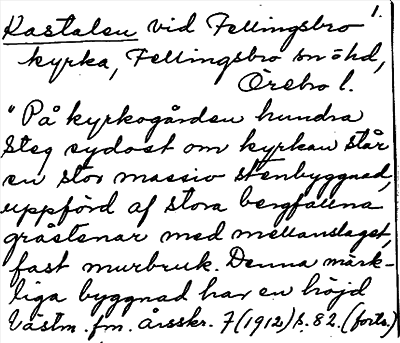 1.
Kastalen vid Fellingsbro
kyrka, Fellingsbro sn o hd,
Örebro l.
"På kyrkogården hundra
steg sydost om kyrkan står
en stor massiv stenbyggnad,
uppförd af stora bergfallna
gråstenar med mellanslaget,
fast murbruk. Denna märk-
liga byggnad har en höjd
Västm. fm. årsskr. 7 (1912) s. 82. (forts.)